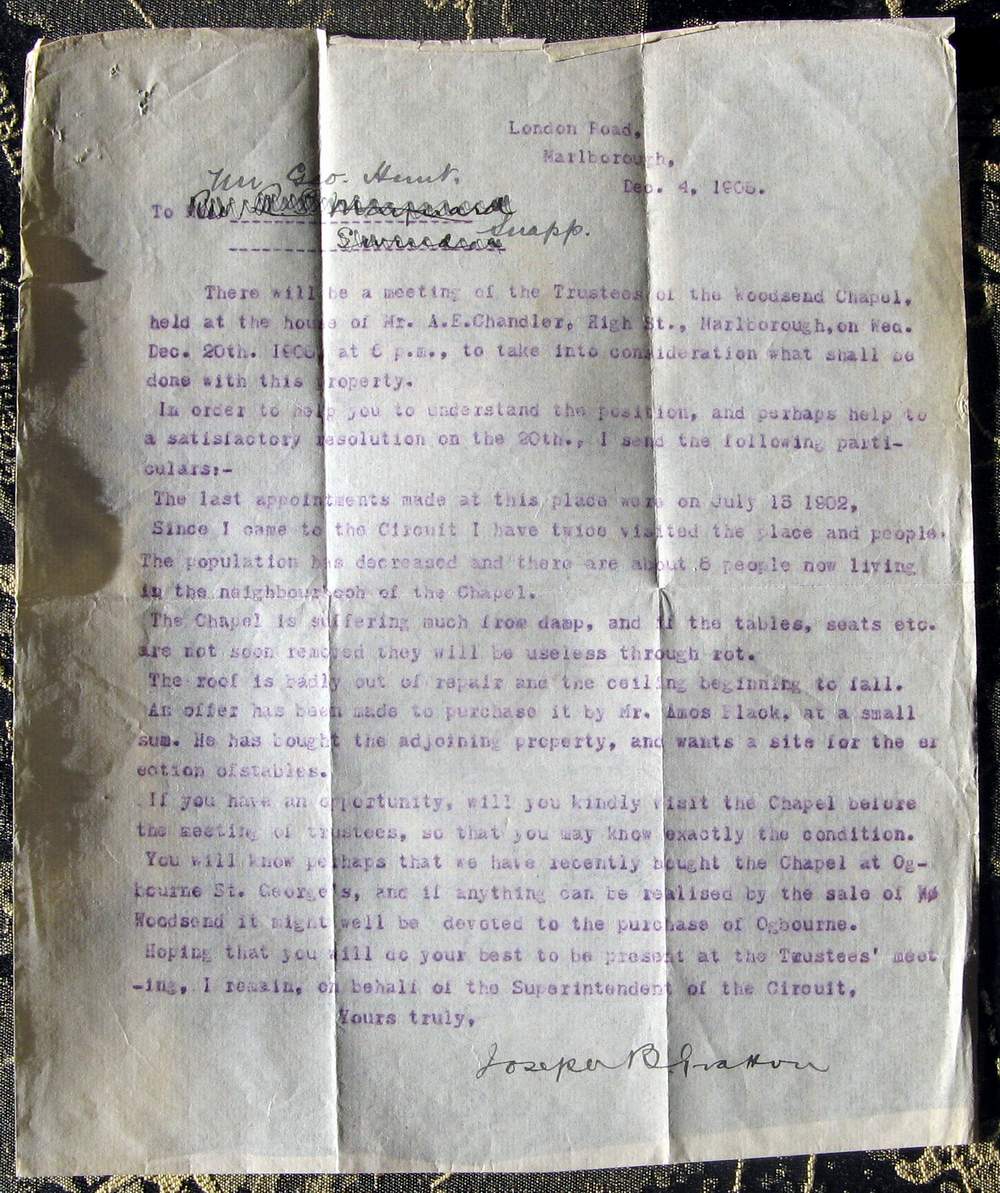 London Road,
Marlborough,
Dec. 4, 1905.
Mr Geo. Hunt.
To
Snapp.
There will be a meeting of the Trustees of the Woodsend Chapel,
held at the house of Mr. A.E.Chandler, High St., Marlborough,on Wed.
Dec. 20th. 1905, at 6 p.m., to take into consideration what shall be
done with this property.
In order to help you to understand the position, and perhaps help to
a satisfactory resolution on the 20th., I send the following parti-
culars:-
The last appointments made at this place were on July 13 1902,
Since I came to the Circuit I have twice visited the place and people.
The population has decreased and there are about 8 people now living
in the neighbourhooh of the Chapel.
The Chapel is suffering much from damp, and if the tables, seats etc.
are not soon removed they will be useless through rot.
The roof is badly out of repair and the ceiling beginning to fall.
An offer has been made to purchase it by Mr. Amos Black, at a small
sum. He has bought the adjoining property, and wants a site for the er
ection ofstables.
If you have an opportunity, will you kindly visit the Chapel before
the meeting of trustees, so that you may know exactly the condition.
You will know perhaps that we have recently bought the Chapel at Og-
bourne St. George's, and if anything can be realised by the sale of
Woodsend it might well be devoted to the purchase of Ogbourne.
Hoping that you will do your best to be present at the Trustees' meet
-ing, I remain, on behalf of the Superintendent of the Circuit,
Yours truly,
Joseph B. Gratton